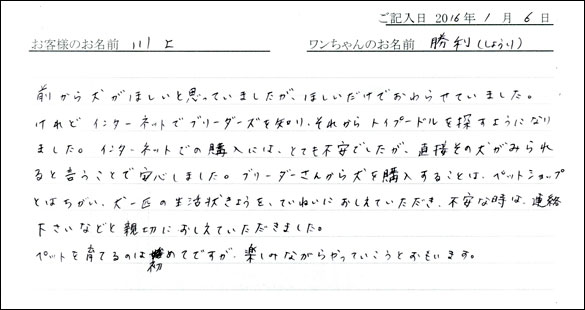 ご記入日 2016年 1月 6日
お客様のお名前 川上 ワンちゃんのお名前 勝利(しょうり)
前から犬がほしいと思っていましたが、ほしいだけでおわらせていました。
けれどインターネットでブリーダーズを知り、それからトイプードルを探すようになり
ました。インターネットでの購入には、とても不安でしたが、直接その犬がみられ
ると言うことで安心しました。ブリーダーさんから犬を購入することは、ペットショップ
とはちがい、犬一匹の生活状きょうを、ていねいにおしえていただき、不安な時は、連絡
下さいなどと親切におしえていただきました。
ペットを育てるのは初めてですが、楽しみながらやっていこうとおもいます。